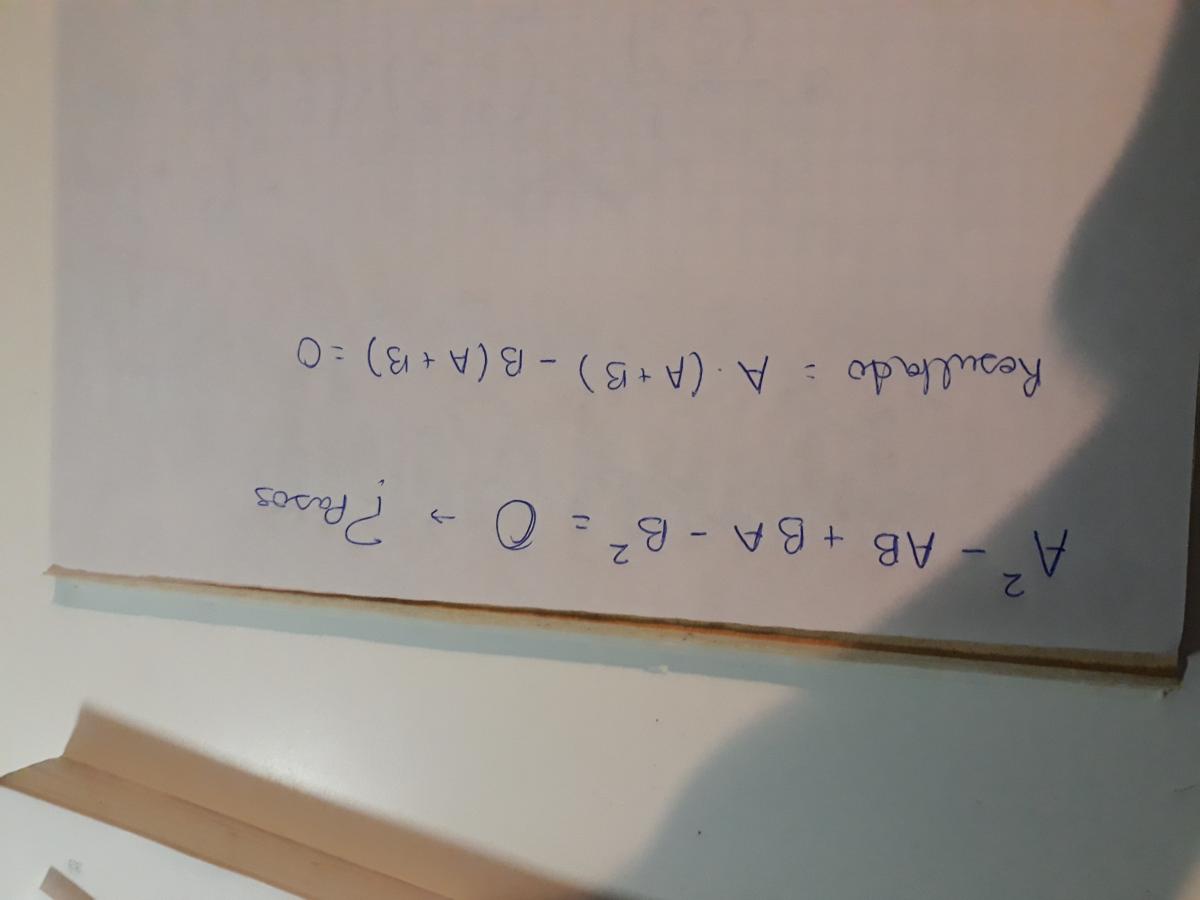 A² - AB + BA - B² = O → ¿Pasos
Resultado = A · (A + B) - B (A + B) = O